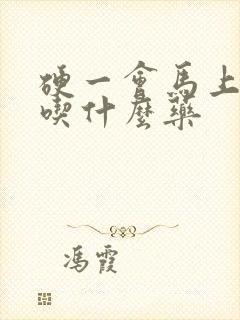 硬一會馬上
喫什麼藥
馮霞